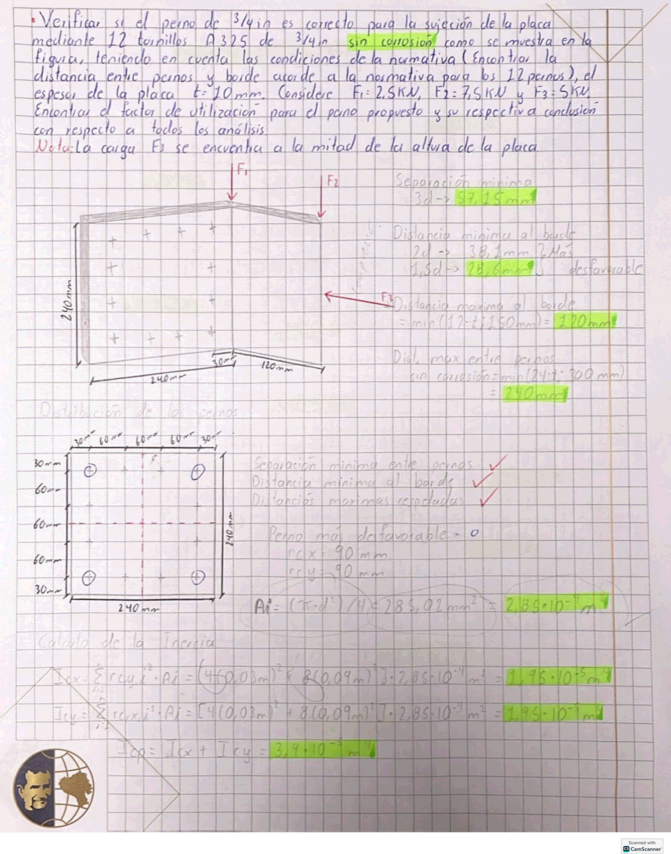 • Verificar si el perno de 3/4 in es correcto para la sujeción de la placa
mediante 12 tornillos A325 de 3/4 in sin corrosión como se muestra en la
figura, teniendo en cuenta las condiciones de la normativa (Encontrar la
distancia entre pernos y borde acorde a la normativa para los 12 pernos), el
espesor de la placa t=10mm. Considere F1=2,5KN, F2=7,5KN y F3=5KN.
Encontrar el factor de utilización para el perno propuesto y su respectiva conclusión
con respecto a todos los análisis
Nota: La carga F3 se encuentra a la mitad de la altura de la placa
F1
F2
Separación mínima
3d → 57,15mm
Distancia mínima al borde
2d → 38,1mm } Más
1,5d → 28,6mm desfavorable
240mm
F3
Distancia maxima al borde
= min(12·t; 150mm) = 120mm
30mm
120mm
240mm
Dist. max entre pernos
sin corrosión = min(24·t; 300mm)
= 240mm
Distribución de los pernos
30mm 60mm 60mm 60mm 30mm
30mm
60mm
60mm
60mm
30mm
240mm
240mm
Separación mínima entre pernos ✓
Distancia mínima al borde ✓
Distancias maximas respetadas ✓
Perno más desfavorable = o
rcx = 90 mm
rcy = 90 mm
Ai = (π·d²)/4 = 285,02mm² = 2,85·10⁻⁴ m²
Cálculo de la Inercia
Icx = Σ rcyi² · Ai = [4(0,03m)² + 8(0,09m)²] · 2,85·10⁻⁴ m² = 1,95·10⁻⁵ m⁴
Icy = Σ rcxi² · Ai = [4(0,03m)² + 8(0,09m)²] · 2,85·10⁻⁴ m² = 1,95·10⁻⁵ m⁴
Icp = Icx + Icy = 3,9·10⁻⁵ m⁴
Scanned with
CS CamScanner